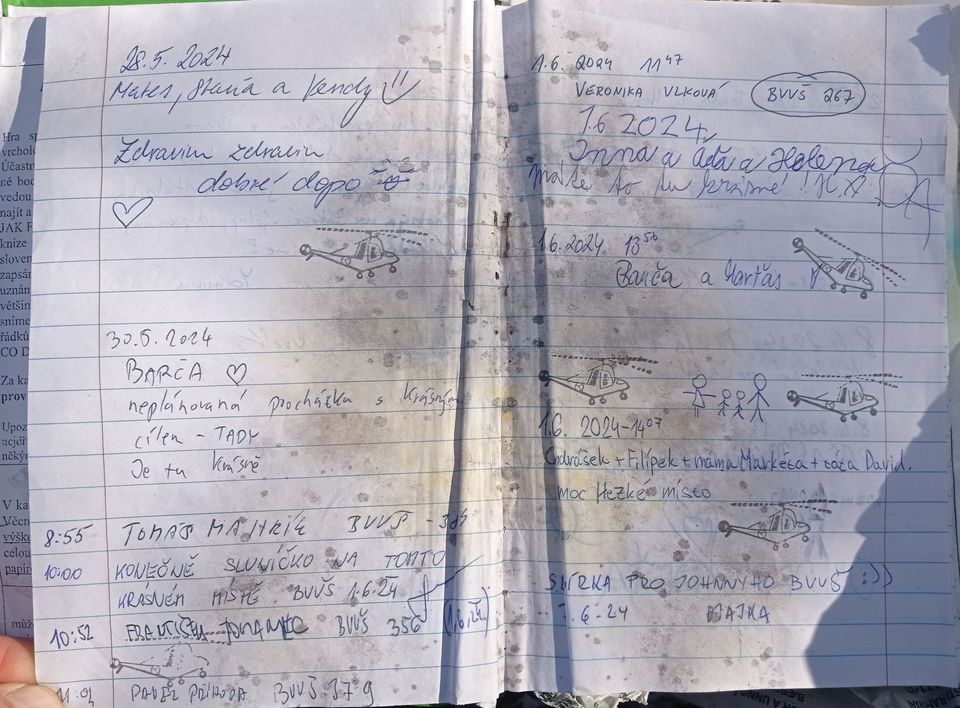 28.5. 2024
Mates, Stáňa a Vendy
Zdravím zdravím
dobré dopo
30.5. 2024
BARČA
neplánovaná procházka s krásným
cílem - TADY
Je tu krásně
8:55 TOMÁŠ BVVŠ
10:00 KONEČNĚ SLUNÍČKO NA TOMTO
KRÁSNÉM MÍSTĚ. BVVŠ 1.6.24
10:52 BVVŠ 356 (1.6.24.)
PAVEL PŘÍHODA BVVŠ 379
1.6. 2024 11 47
VERONIKA VLKOVÁ BVVŠ 267
1.6 2024
Inna a Áďa a Helena
máte to tu krásné !
1.6.2024 13 56
Barča a
1.6. 2024-14 07
Ondrášek + Filípek + máma Markéta + táta David.
moc Hezké místo
SBÍRKA PRO JOHNNYHO BVVŠ :))
.6-24
Hra
vrchol
Účast
né
vedou
najít a
JAK
knize
sloven
zapsán
uznán
větším
sníme
řádků
CO D
Za ka
prov
Upoz
někým
V ka
Včen
výšk
celou
papír